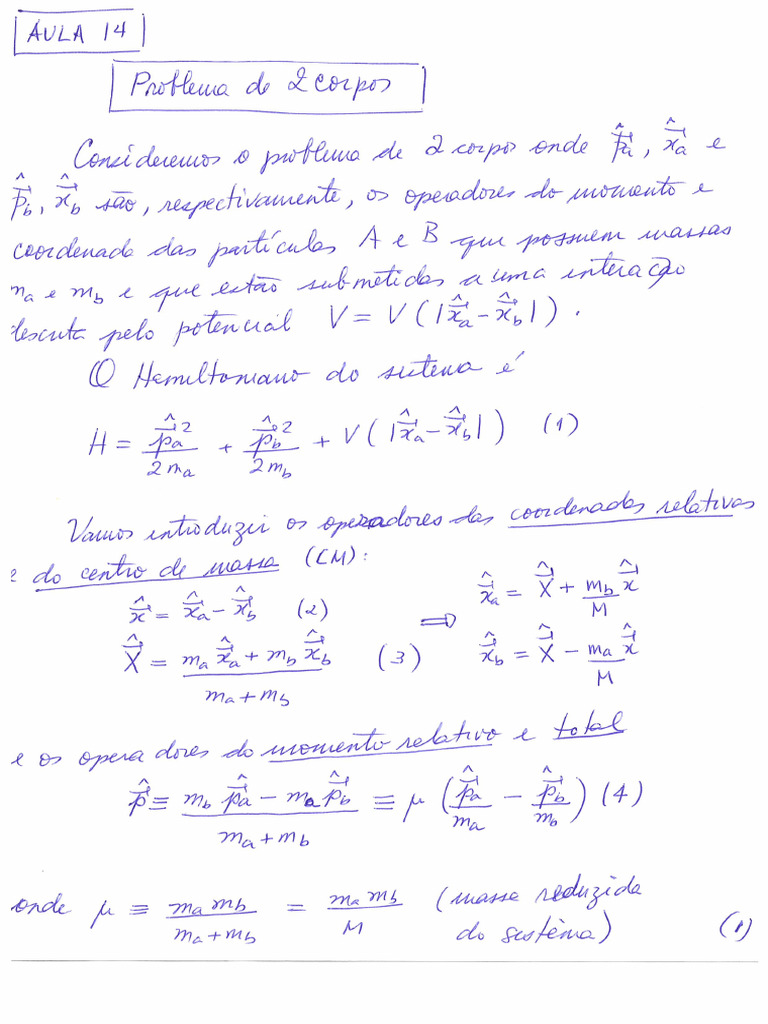 AULA 14
Problema de 2 corpos
Consideremos o problema de 2 corpos onde $\hat{\vec{p}}_a$, $\hat{\vec{x}}_a$ e
$\hat{\vec{p}}_b$, $\hat{\vec{x}}_b$ são, respectivamente, os operadores do momento e
coordenada das partículas A e B que possuem massas
$m_a$ e $m_b$ e que estão submetidas a uma interação
descrita pelo potencial $V = V(|\hat{\vec{x}}_a - \hat{\vec{x}}_b|)$.
O Hamiltoniano do sistema é
$H = \frac{\hat{\vec{p}}_a^2}{2m_a} + \frac{\hat{\vec{p}}_b^2}{2m_b} + V(|\hat{\vec{x}}_a - \hat{\vec{x}}_b|)$ (1)
Vamos introduzir os operadores das coordenadas relativas
e do centro de massa (CM):
$\hat{\vec{x}} = \hat{\vec{x}}_a - \hat{\vec{x}}_b$ (2) ⟹ $\hat{\vec{x}}_a = \hat{\vec{X}} + \frac{m_b}{M}\hat{\vec{x}}$
$\hat{\vec{X}} = \frac{m_a\hat{\vec{x}}_a + m_b\hat{\vec{x}}_b}{m_a + m_b}$ (3) $\hat{\vec{x}}_b = \hat{\vec{X}} - \frac{m_a}{M}\hat{\vec{x}}$
e os operadores do momento relativo e total
$\hat{\vec{p}} \equiv \frac{m_b\hat{\vec{p}}_a - m_a\hat{\vec{p}}_b}{m_a + m_b} \equiv \mu\left(\frac{\hat{\vec{p}}_a}{m_a} - \frac{\hat{\vec{p}}_b}{m_b}\right)$ (4)
onde $\mu \equiv \frac{m_a m_b}{m_a + m_b} = \frac{m_a m_b}{M}$ (massa reduzida
do sistema) (1)